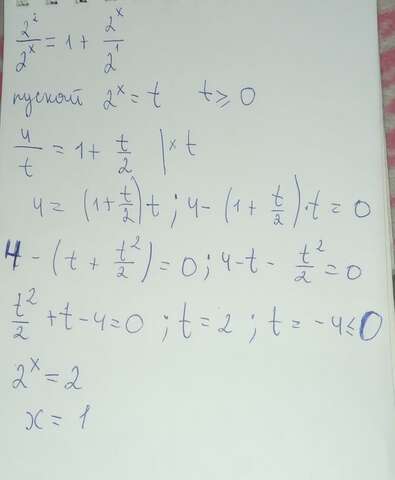 2²/2ˣ = 1 + 2ˣ/2¹
пускай 2ˣ = t t ⩾ 0
4/t = 1 + t/2 |× t
4 = (1 + t/2)t ; 4 - (1 + t/2)·t = 0
4 - (t + t²/2) = 0 ; 4 - t - t²/2 = 0
t²/2 + t - 4 = 0 ; t = 2 ; t = -4 ≤ 0
2ˣ = 2
x = 1